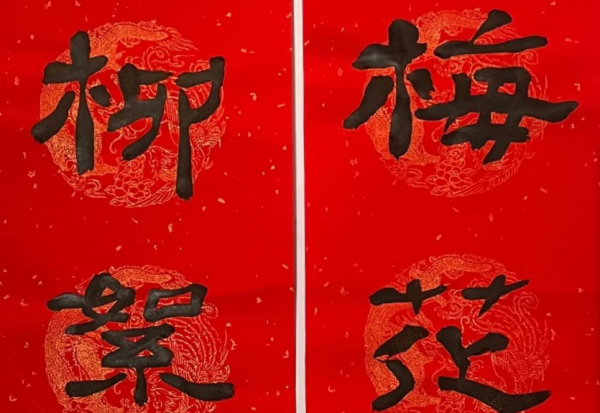 梅花
柳絮